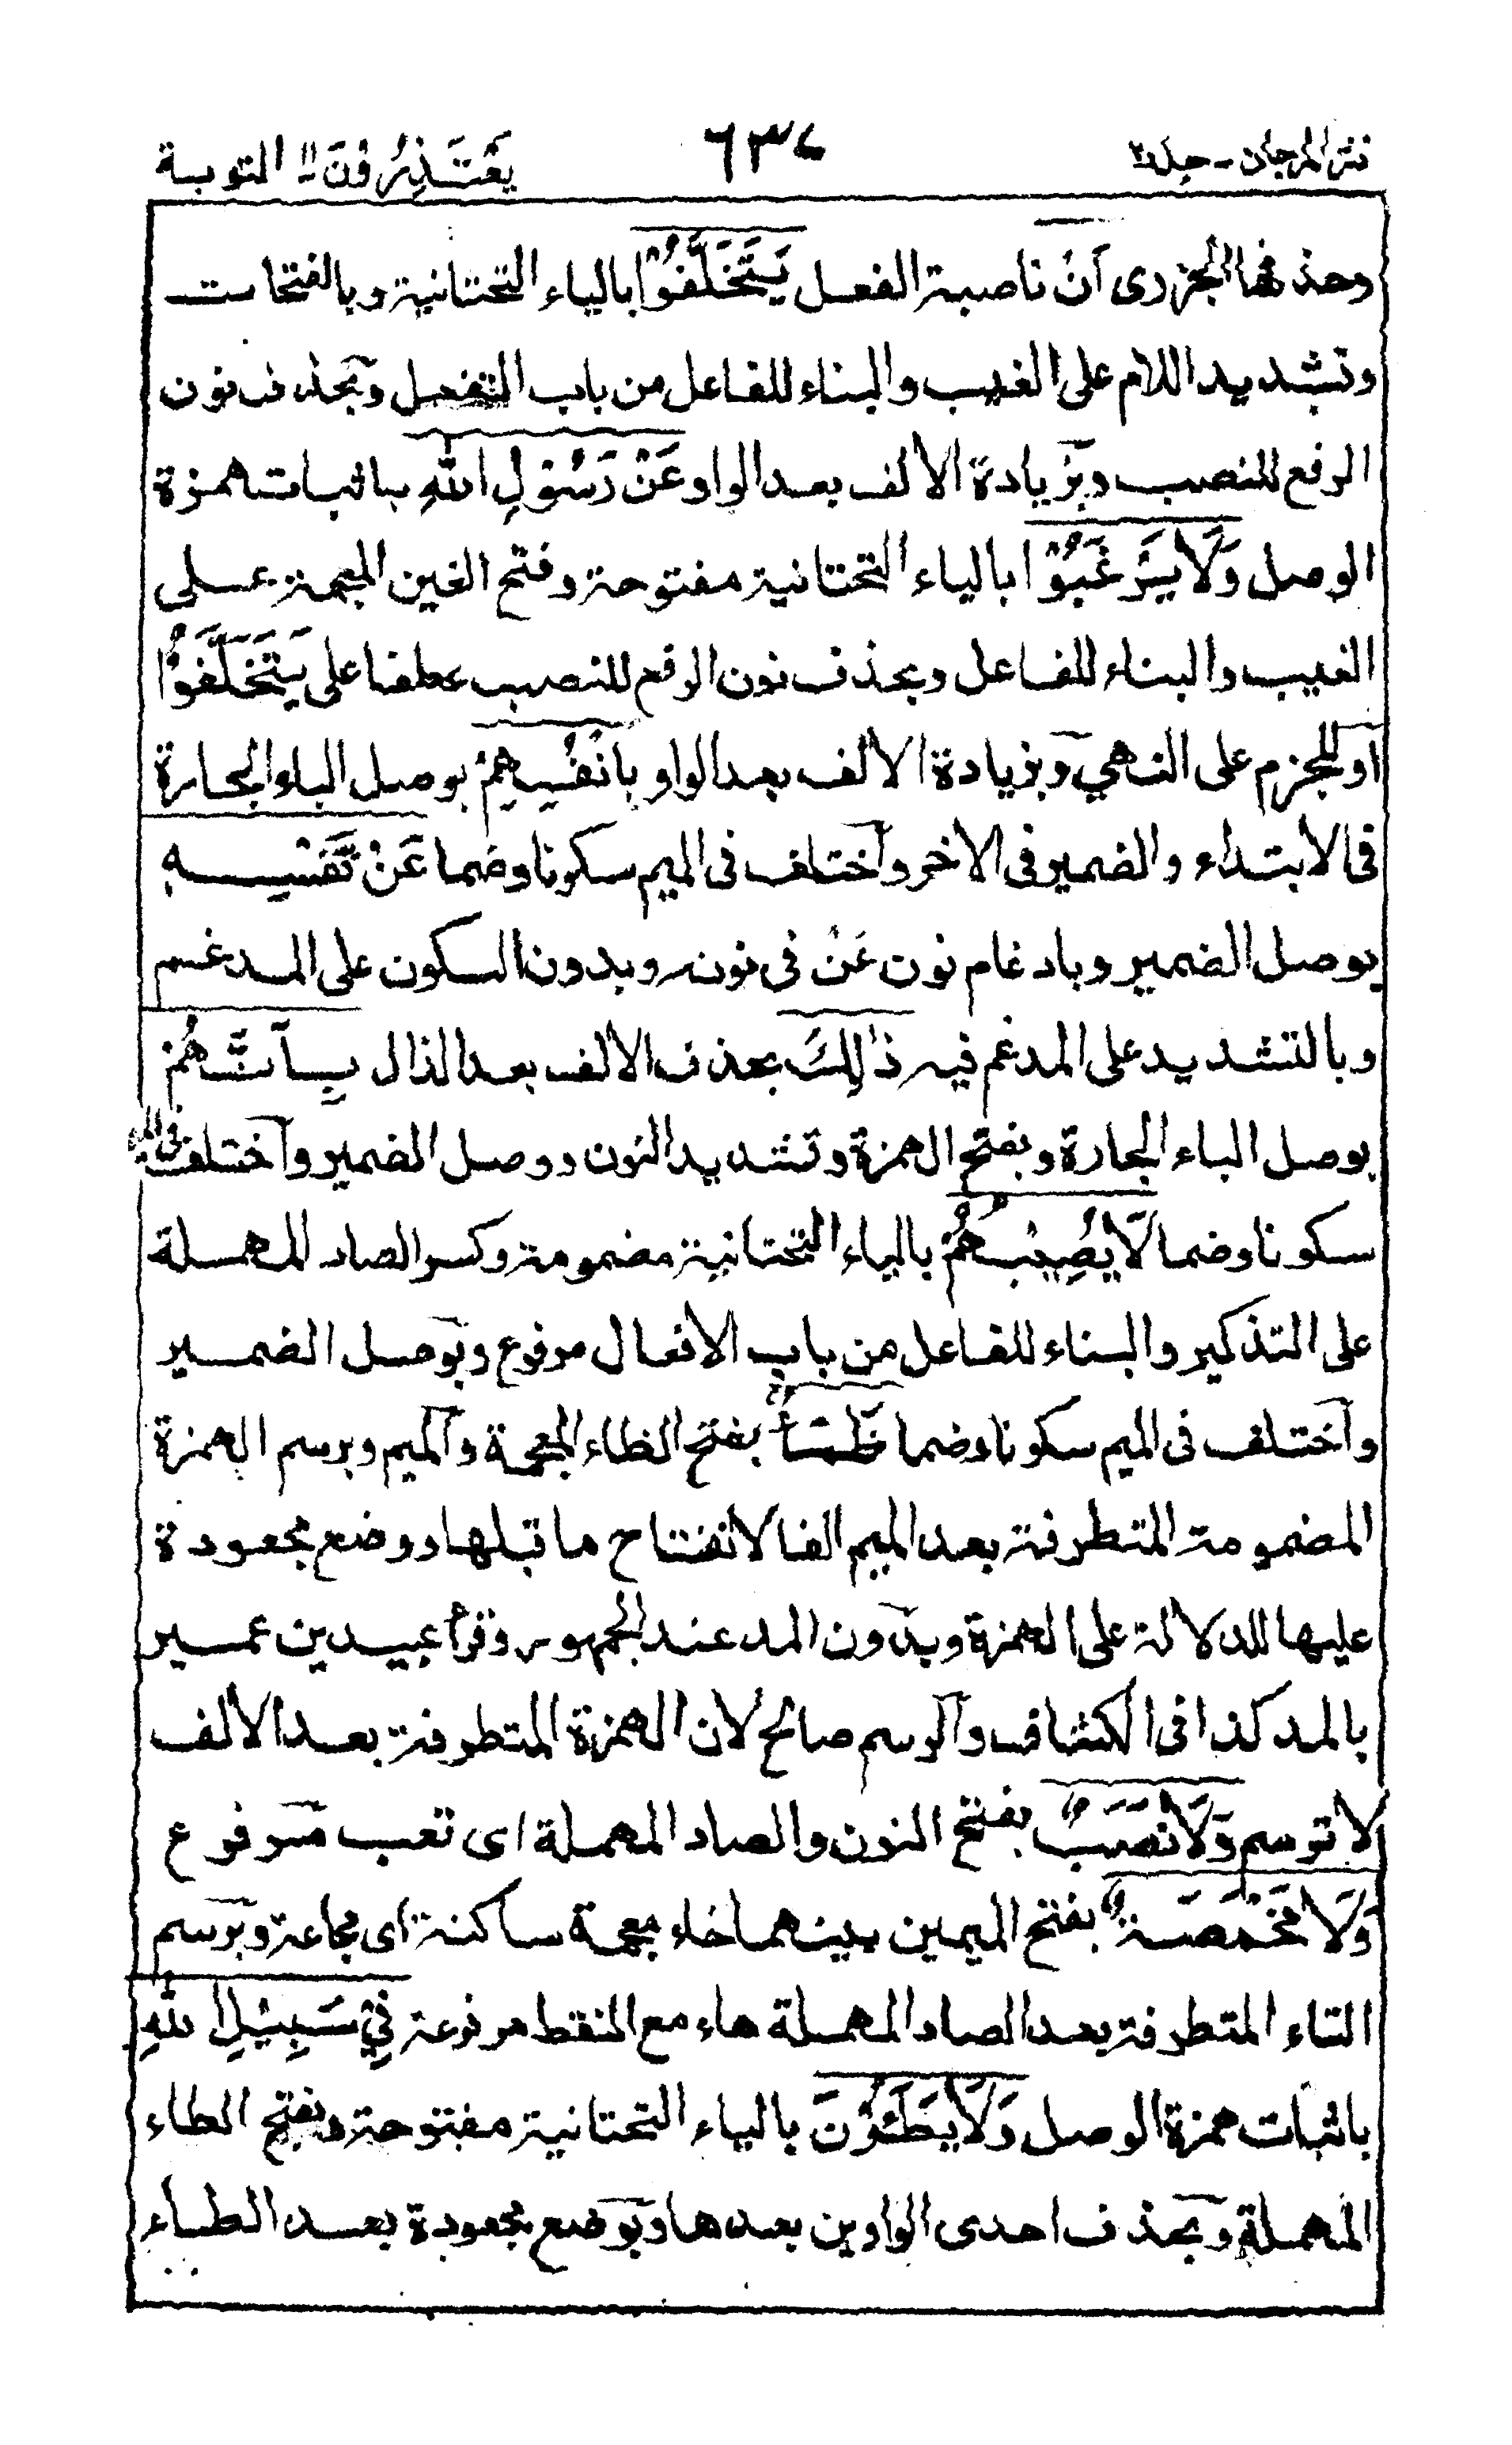 نثر المرجان - جلد٢
٦٣٧
يَعْتَذِرُوْنَ ١١ التوبة
وحذفها الجزرى اَنْ ناصبة الفعل يَتَخَلَّفُوْا بالياء التحتانية وبالفتحات
وتشديد اللام على الغيب والبناء للفاعل من باب التفعل وبحذف نون
الرفع للنصب وبزيادة الالف بعد الواو عَنْ رَسُوْلِ اللّٰهِ باثبات همزة
الوصل وَلَا يَرْغَبُوْا بالياء التحتانية مفتوحة وفتح الغين المعجمة على
الغيب والبناء للفاعل وبحذف نون الرفع للنصب عطفا على يَتَخَلَّفُوْا
او للجزم على النهي وبزيادة الالف بعد الواو بِاَنْفُسِهِمْ بوصل الباء الجارة
فى الابتداء والضمير فى الاخر واختلف فى الميم سكونا وضما عَنْ نَّفْسِهٖ
بوصل الضمير وبادغام نون عَنْ فى نونه وبدون السكون على المدغم
وبالتشديد على المدغم فيه ذٰلِكَ بحذف الالف بعد الذال بِاَنَّهُمْ
بوصل الباء الجارة وبفتح الهمزة وتشديد النون ووصل الضمير واختلف فى الميم
سكونا وضما لَا يُصِيْبُهُمْ بالياء التحتانية مضمومة وكسر الصاد المهملة
على التذكير والبناء للفاعل من باب الافعال مرفوع وبوصل الضمير
واختلف فى الميم سكونا وضما ظَمَأٌ بفتح الظاء المعجمة والميم وبرسم الهمزة
المضمومة المتطرفة بعد الميم الفا لانفتاح ما قبلها ووضع مجعودة
عليها للدلالة على الهمزة وبدون المد عند الجمهور وقرأ عبيد بن عمير
بالمد كذا فى الكشاف والرسم صالح لان الهمزة المتطرفة بعد الالف
لا ترسم وَلَا نَصَبٌ بفتح النون والصاد المهملة اى تعب مرفوع
وَلَا مَخْمَصَةٌ بفتح الميمين بينهما خاء معجمة ساكنة اى مجاعة وبرسم
التاء المتطرفة بعد الصاد المهملة هاء مع النقط مرفوعة فِيْ سَبِيْلِ اللّٰهِ
باثبات همزة الوصل وَلَا يَطَـُٔوْنَ بالياء التحتانية مفتوحة وبفتح الطاء
المهملة وبحذف احدى الواوين بعدها وبوضع مجعودة بعد الطاء